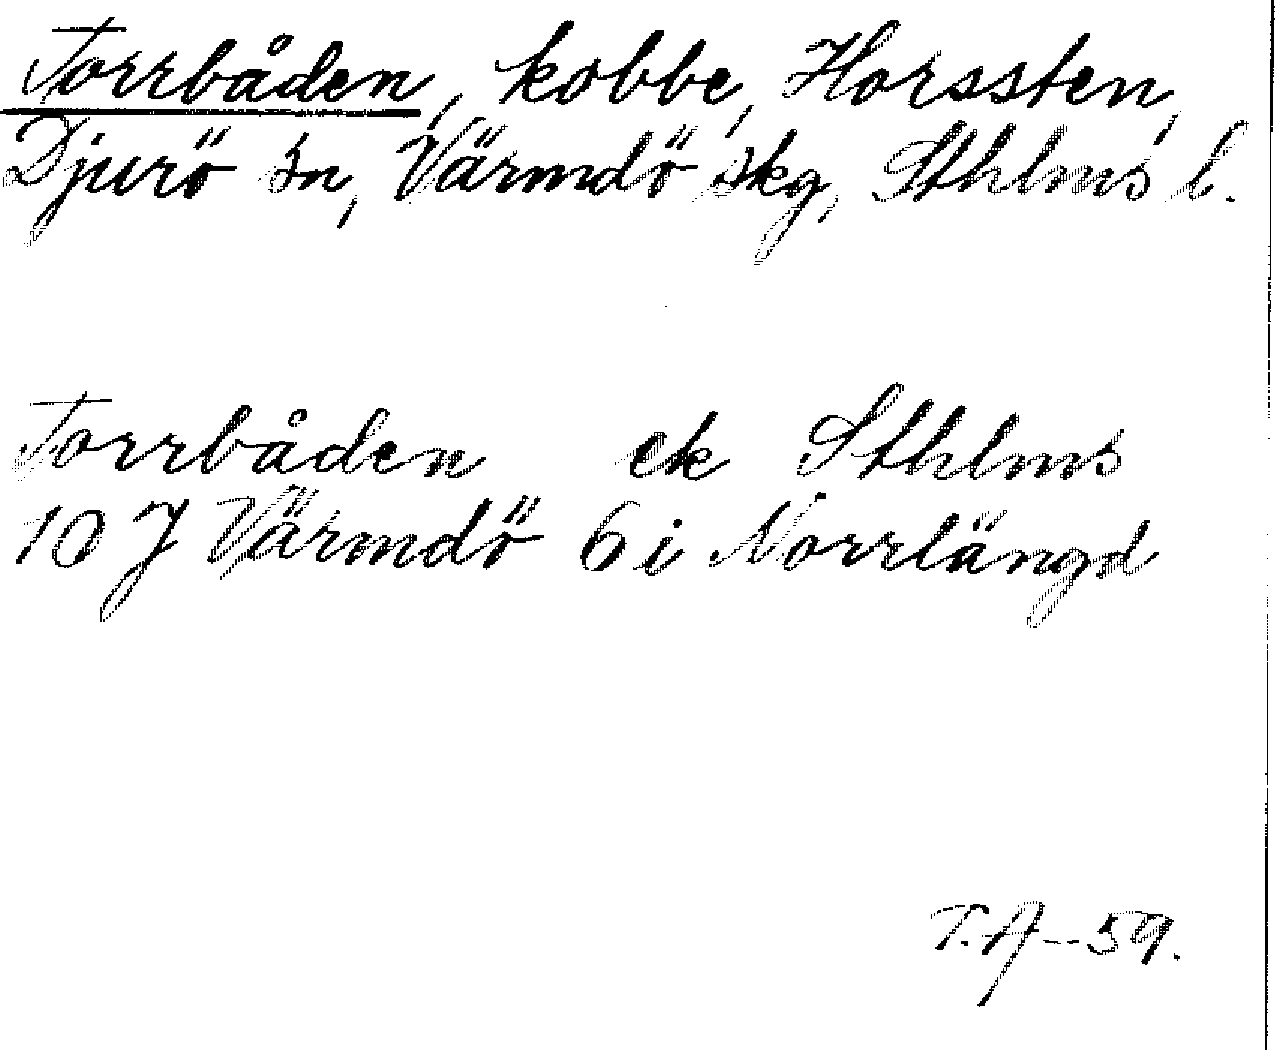 Torrbåden, kobbe, Horssten,
Djurö sn, Värmdö skg, Sthlms l.
Torrbåden ek Sthlms
10 J Värmdö 6 i Norrlängd
T.A--59.